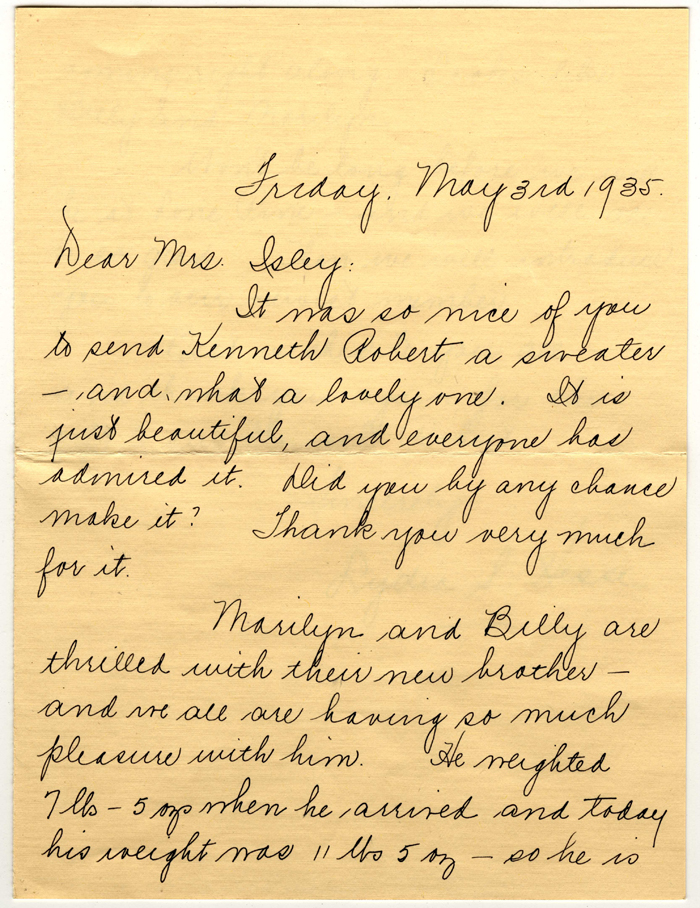 Friday, May 3rd 1935.
Dear Mrs. Isley:
It was so nice of you
to send Kenneth Robert a sweater
— and what a lovely one. It is
just beautiful, and everyone has
admired it. Did you by any chance
make it? Thank you very much
for it.
Marilyn and Billy are
thrilled with their new brother —
and we all are having so much
pleasure with him. He weighted
7 lbs - 5 ozs when he arrived and today
his weight was 11 lbs 5 oz - so he is